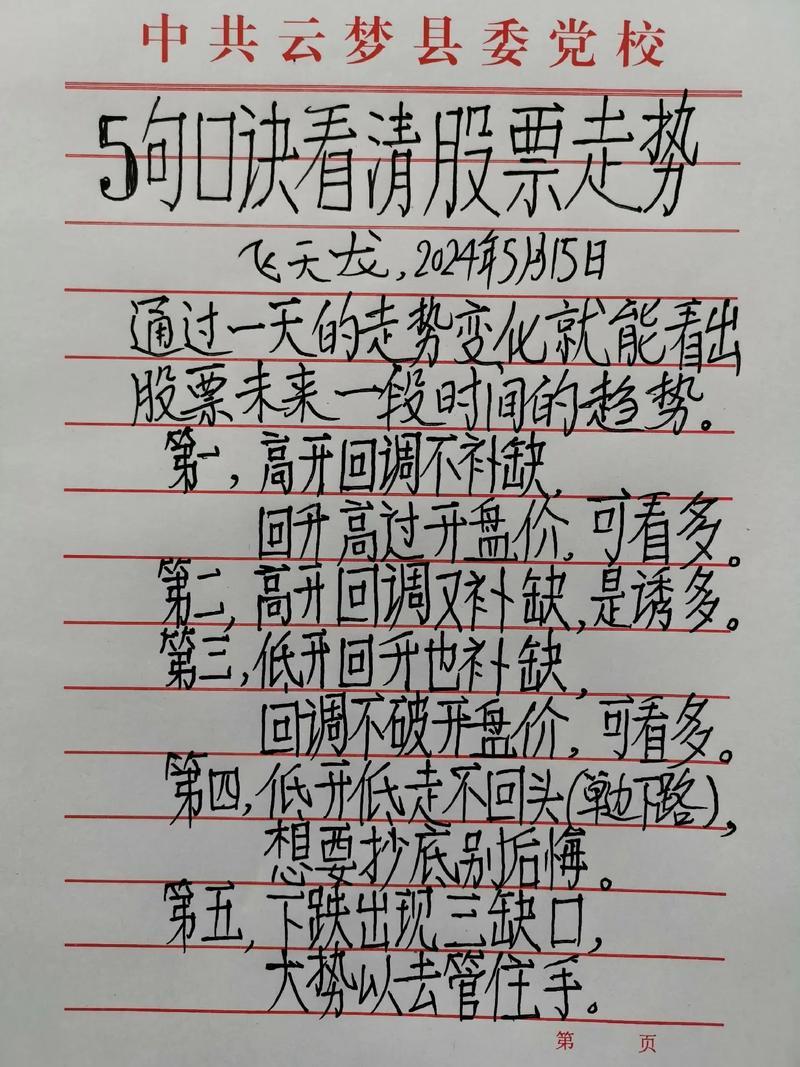 中共云梦县委党校
5句口诀看清股票走势
飞天龙,2024年5月15日
通过一天的走势变化就能看出
股票未来一段时间的趋势。
第一,高开回调不补缺,
回升高过开盘价,可看多。
第二,高开回调又补缺,是诱多。
第三,低开回升也补缺,
回调不破开盘价,可看多。
第四,低开低走不回头(单边下路),
想要抄底别后悔。
第五,下跌出现三缺口,
大势以去管住手。
第 页